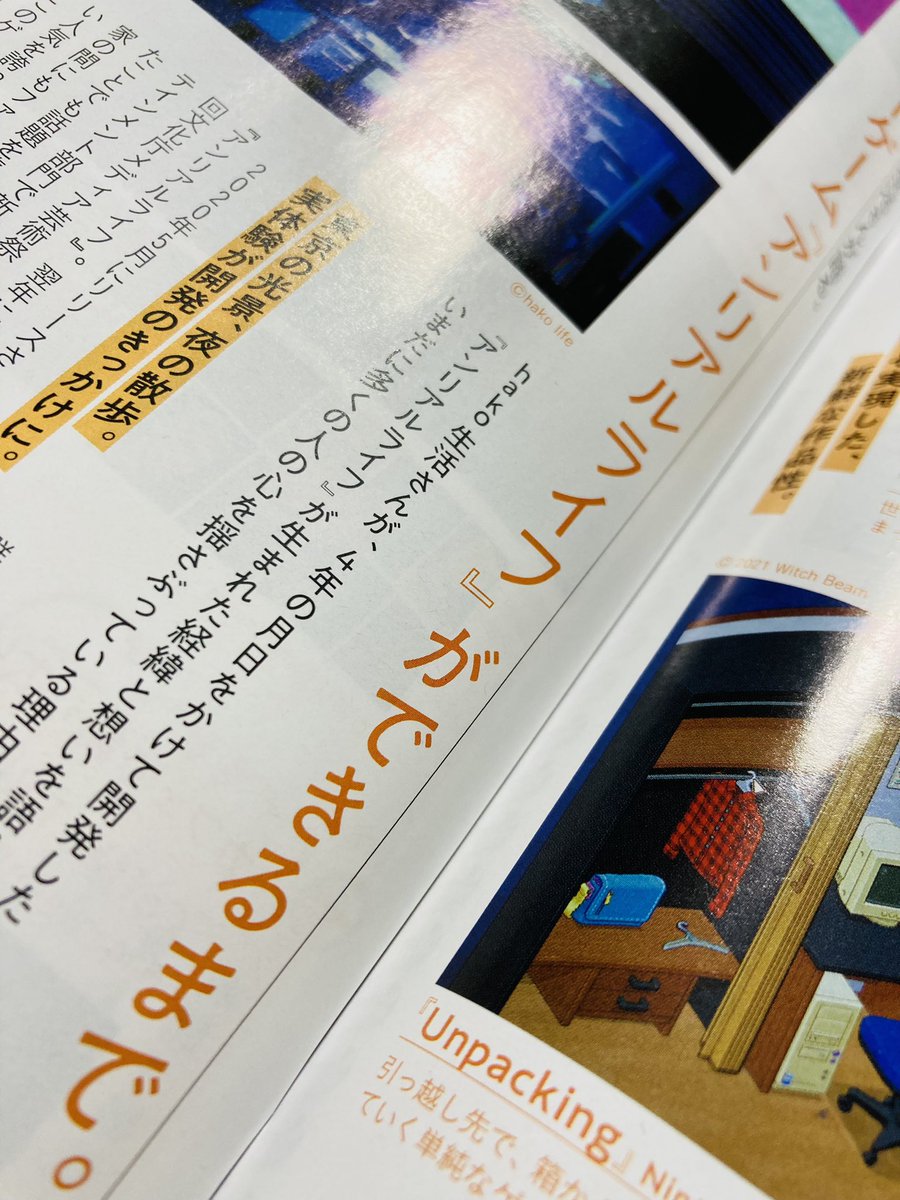 ゲーム『アンリアルライフ』ができるまで。
hako生活さんが、4年の月日をかけて開発した
『アンリアルライフ』が生まれた経緯と想いを語
いまだに多くの人の心を揺さぶっている理由
©hako life
東京の光景、夜の散歩。
実体験が開発のきっかけに。
2020年5月にリリースさ
『アンリアルライフ』。翌年に
回文化庁メディア芸術祭
ティンメント部門で新
たことでも話題を
家の間にもファ
い人気を誇
このゲ
©2021 Witch Beam
『Unpacking』Nin
引っ越し先で、箱か
ていく単純なゲ